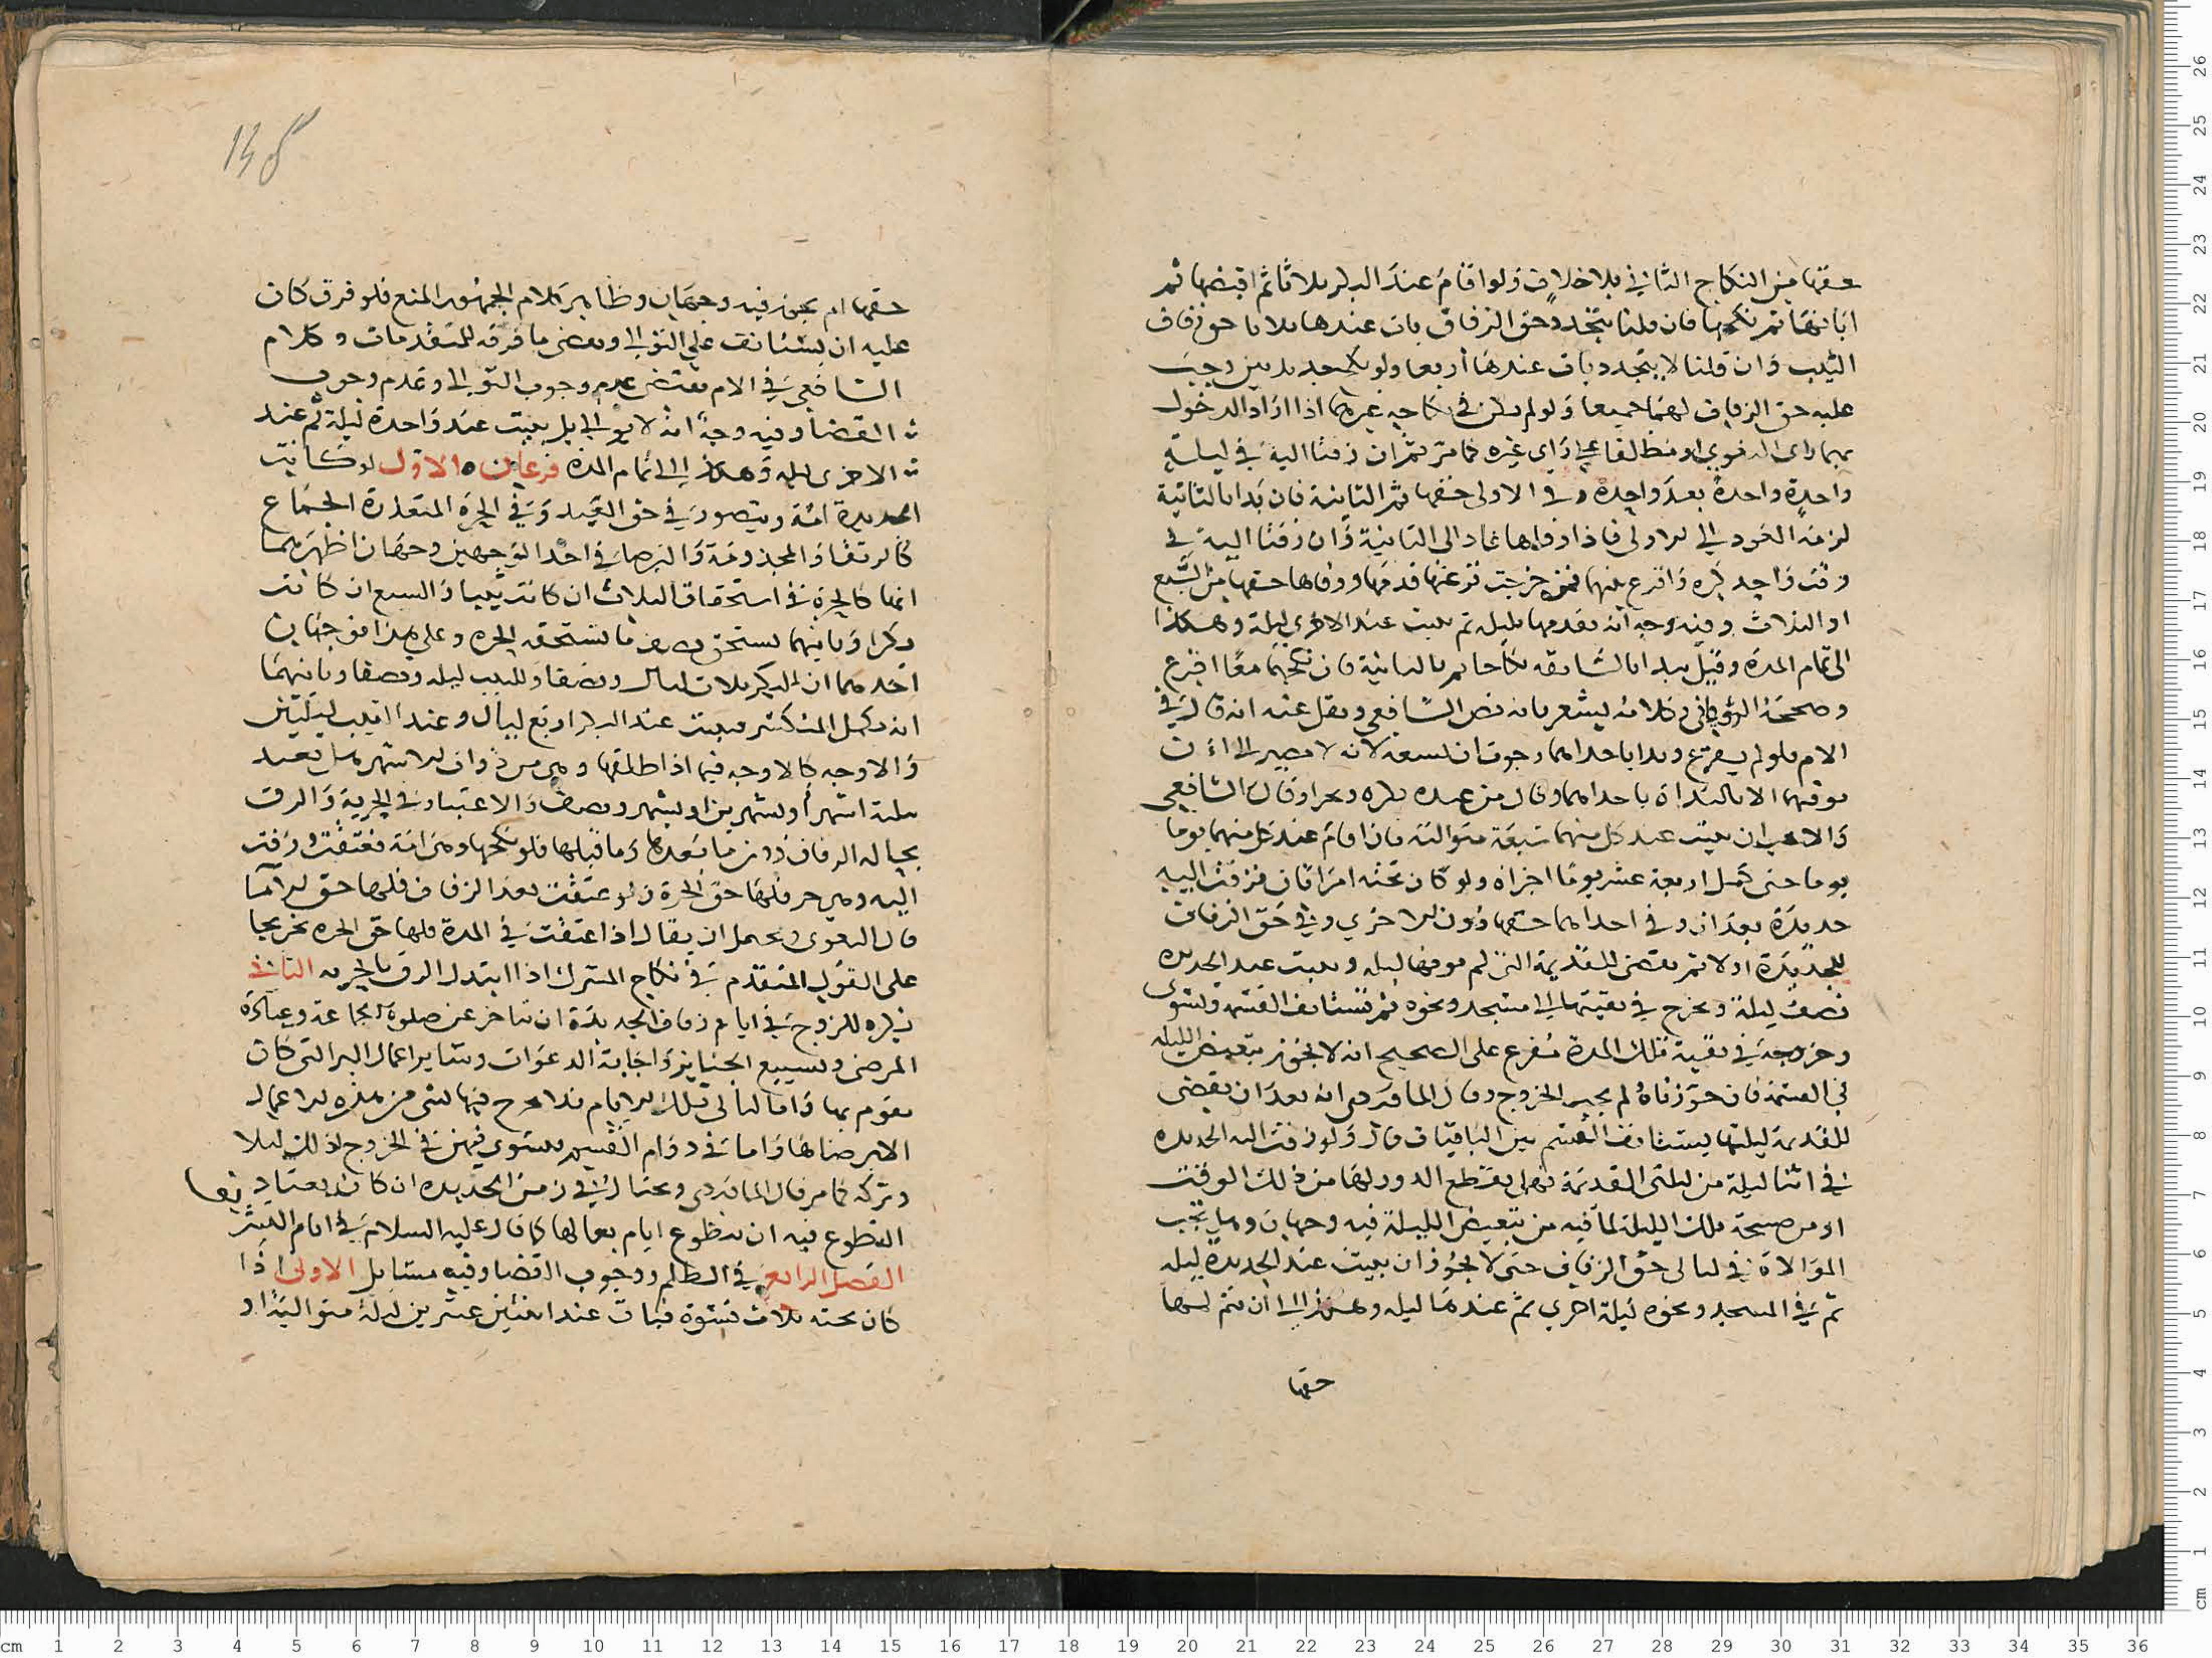 حقها من النكاح الثاني بلا خلاف ولو اقام عند البكر ثلاثا ثم اقبضها ثم
ابانها ثم نكحها فان قلنا يتجدد حق الزفاف بات عندها ثلاثا حق زفاف
الثيب وان قلنا لا يتجدد بات عندها أربعا ولو نكح جديدتين وجب
عليه حق الزفاف لهما جميعا ولو لم يكن في نكاحه غيرهما اذا اراد الدخول
بهما راى البغوي او مطلقا على راي غيره كما مر ثم ان زفتا اليه في ليلة
واحدة واحدة بعد واحدة وفى الاولى حقها ثم الثانية فان بدا بالثانية
لزمه العود الى الاولى فاذا وفاها عاد الى الثانية وان زفتا اليه في
وقت واحد كره واقرع بينهما فمن خرجت قرعتها قدمها ووفاها حقها من السبع
او الثلاث وفيه وجه انه يقدمها بليلة ثم يبيت عند الاخرى ليلة وهكذا
الى تمام المدة وقيل يبدا بالسابقه نكاحا ثم بالثانية فان نكحهما معا اقرع
وصححه الروياني وكلامه يشعر بانه نص الشافعي ونقل عنه انه قال في
الام فلو لم يقرع وبدا باحداهما رجوت ان يسعه لانه لا يصير الى ان
يوفيهما الا بالبداة باحداهما وقال من عنده يكره ونحرا وقال الشافعي
والاحب ان يبيت عند كل منهما سبعة متوالية فان اقام عند كل منهما يوما
يوما حتى كمل اربعة عشر يوما اجزاه ولو كان تحته امراتان فزفت اليه
جديدة بعد ان وفى احداهما حقها دون الاخرى وفي حق الزفاف
للجديدة اولا ثم يقضى للقديمة التي لم يوفها ليله ويبيت عند الجديده
نصف ليلة ويخرج في بقيتها الى مسجد ونحوه ثم تستانف القسم ويسوى
وخروجه في بقية تلك المدة مفرع على الصحيح انه لا يجوز تبعيض الليله
في القسم فان جوزناه لم يجب الخروج وقال الماوردى انه بعد ان يقضى
للقديمة ليلتها يستانف القسم بين الباقيات قال ولو زفت اليه الجديده
في اثنا ليلة من ليلتى القديمة فهل يقطع الدور لها من ذلك الوقت
او من صبيحة تلك الليلة لما فيه من تبعيض الليلة فيه وجهان وهل تجب
الموالاة في ليالى حق الزفاف حتى لا يجوز ان يبيت عند الجديدة ليله
ثم في المسجد ونحوه ليلة اخرى ثم عندها ليله وهكذا الى ان يتم لها
حقها
حقها ام يجوز فيه وجهان وظاهر كلام الجمهور المنع فلو فرق كان
عليه ان يستانف على التوالى ويقضى ما فرقه للمتقدمات وكلام
الشافعى في الام يقتضى عدم وجوب التوالى وعدم وجوب
القضا وفيه وجه انه لا يوالى بل يبيت عند واحدة ليلة ثم عند
الاخرى ليله وهكذا الى تمام المدة فرعان الاول لو كانت
الجديدة امة ويتصور في حق العبد وفي الحرة المتعذرة الجماع
كالرتقا والمجذومة والبرصا في احد الوجهين وجهان اظهرهما
انها كالحرة في استحقاق الثلاث ان كانت ثيبا والسبع ان كانت
بكرا وثانيهما يستحق نصف ما تستحقه الحره وعلى هذا فوجهان
احدهما ان للبكر ثلاث ليال ونصفا وللثيب ليله ونصفا وثانيهما
انه يكمل المنكسر فيبيت عند البكر اربع ليال وعند الثيب ليلتين
والاوجه كالاوجه فيما اذا طلقها وهي من ذوات الاشهر هل تعتد
بثلثة اشهر أو بشهرين او بشهر ونصف والاعتبار في الحرية والرق
بحاله الزفاف دون ما بعدها وما قبلها فلو نكحها وهي امة فعتقت وزفت
اليه وهي حر فلها حق الحرة ولو عتقت بعد الزفاف فلها حق الاما
قال البغوى ويحتمل ان يقال اذا عتقت في المدة فلها حق الحره تخريجا
على القول المتقدم في نكاح المشرك اذا ابتدل الرق بالحريه الثاني
يكره للزوج في ايام زفاف الجديدة ان يتاخر عن صلوة الجماعة وعيادة
المرضى وتشييع الجنايز واجابة الدعوات وساير اعمال البر التى كان
يقوم بها واما ليالى تلك الايام فلا يخرج فيها لشى من هذه الاعمال
الا برضاها واما في دوام القسم يستوى فيهن في الخروج لذلك ليلا
وتركه كما مر قال الماوردى ويختار لي في زمن الجديده ان كان يعتاد
التطوع فيه ان يتطوع ايام بعالها كما قال عليه السلام في ايام التشر
الفصل الرابع في الظلم ووجوب القضا وفيه مسايل الاولى اذا
كان تحته ثلاث نسوة فبات عند اثنتين عشرين ليلة متواليه او